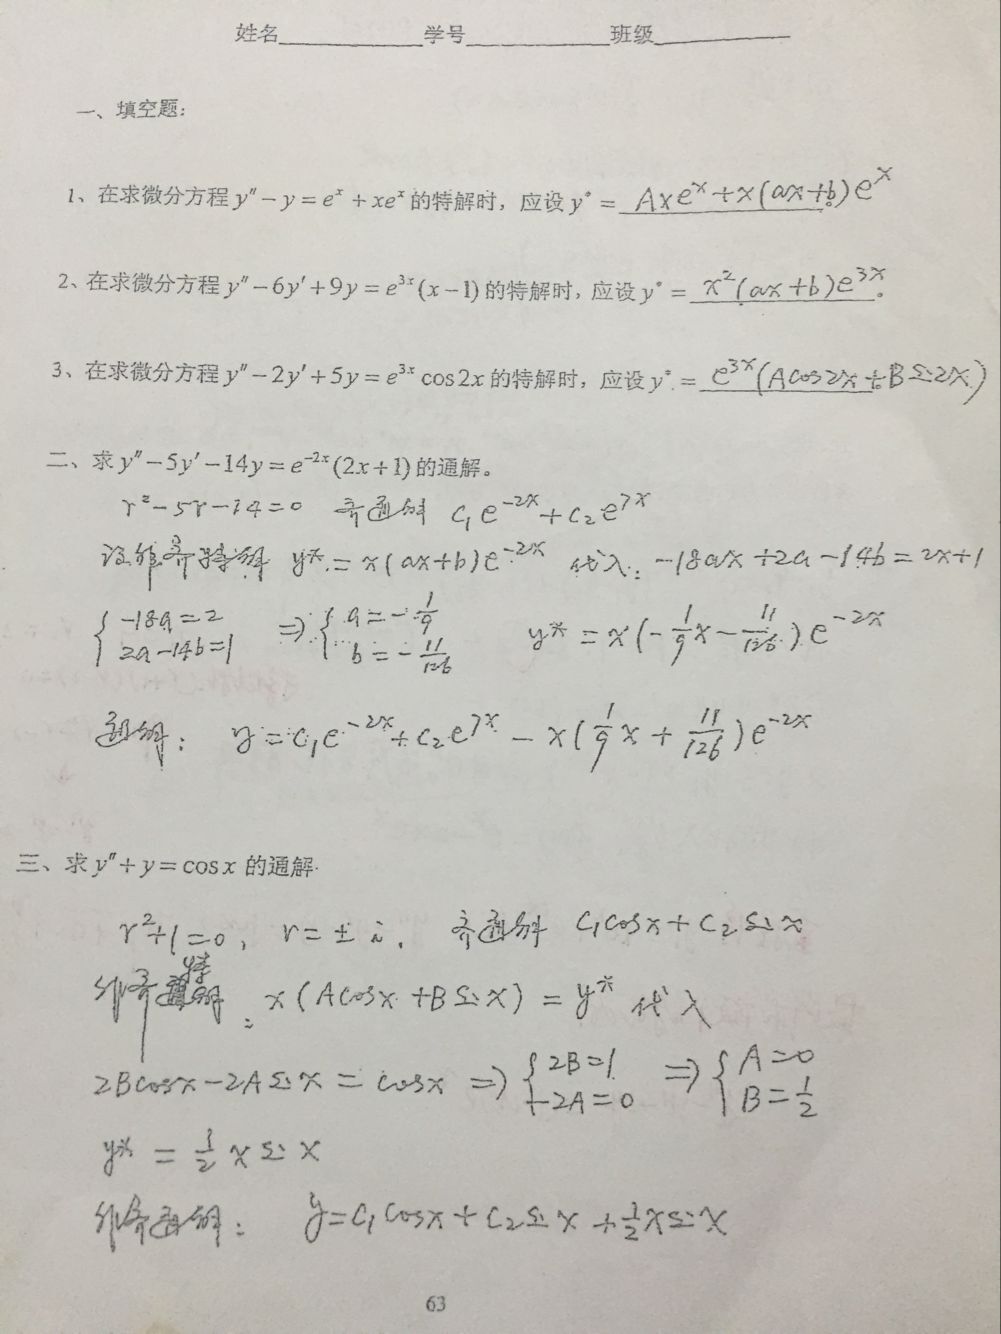 姓名 学号 班级
一、填空题:
1、在求微分方程 y″ − y = e^x + xe^x 的特解时，应设 y* = Axe^x + x(ax+b)e^x。
2、在求微分方程 y″ − 6y′ + 9y = e^{3x}(x−1) 的特解时，应设 y* = x²(ax+b)e^{3x}。
3、在求微分方程 y″ − 2y′ + 5y = e^{3x} cos2x 的特解时，应设 y* = e^{3x}(Acos2x + Bsin2x)。
二、求 y″ − 5y′ − 14y = e^{−2x}(2x+1) 的通解。
r² − 5r − 14 = 0 齐通解 C₁e^{−2x} + C₂e^{7x}
设非齐特解 y* = x(ax+b)e^{−2x} 代入: −18ax + 2a − 14b = 2x+1
{ −18a = 2 ⇒ { a = −1/9
2a − 14b = 1 b = −11/126 y* = x(−1/9 x − 11/126)e^{−2x}
通解: y = C₁e^{−2x} + C₂e^{7x} − x(1/9 x + 11/126)e^{−2x}
三、求 y″ + y = cosx 的通解.
r² + 1 = 0, r = ± i. 齐通解 C₁cosx + C₂sinx
非齐特解: x(Acosx + Bsinx) = y* 代入
2Bcosx − 2Asinx = cosx ⇒ { 2B = 1 ⇒ { A = 0
−2A = 0 B = 1/2
y* = 1/2 x sinx
非齐通解: y = C₁cosx + C₂sinx + 1/2 x sinx
63